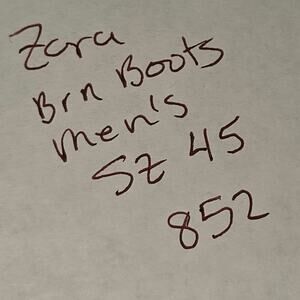 Zara
Brn Boots
men's
Sz 45
852